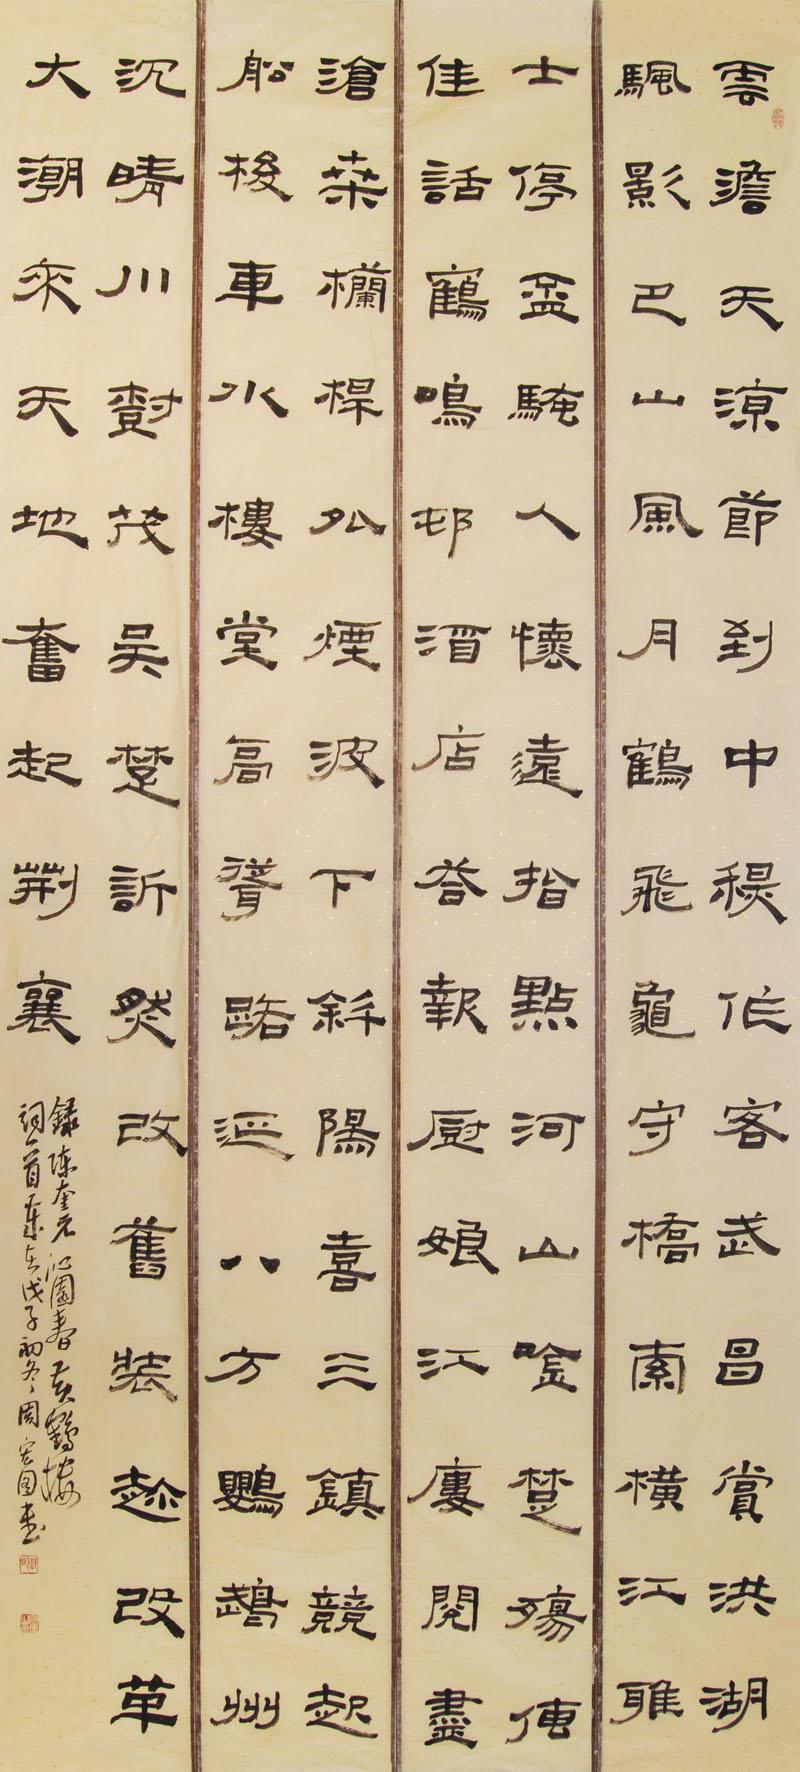 雲澹天涼節到中作客武昌賞洪湖
颿影巴山風月鶴飛龜守橋索橫江雅
士停盃騷人懷遠指點河山唫楚殤傳
佳話鶴鳴邨酒店答報廚娘江廔閱盡
滄桑欄桿外煙波下斜陽喜三鎮競起
船梭車水樓堂高聳路延八方鸚鵡州
沉晴川對茂吳楚訢然改舊裝趁改革
大潮來天地奮起荊襄
錄陳奎元沁園春黃鶴樓
詞一首歲在戊子初冬周宏國書